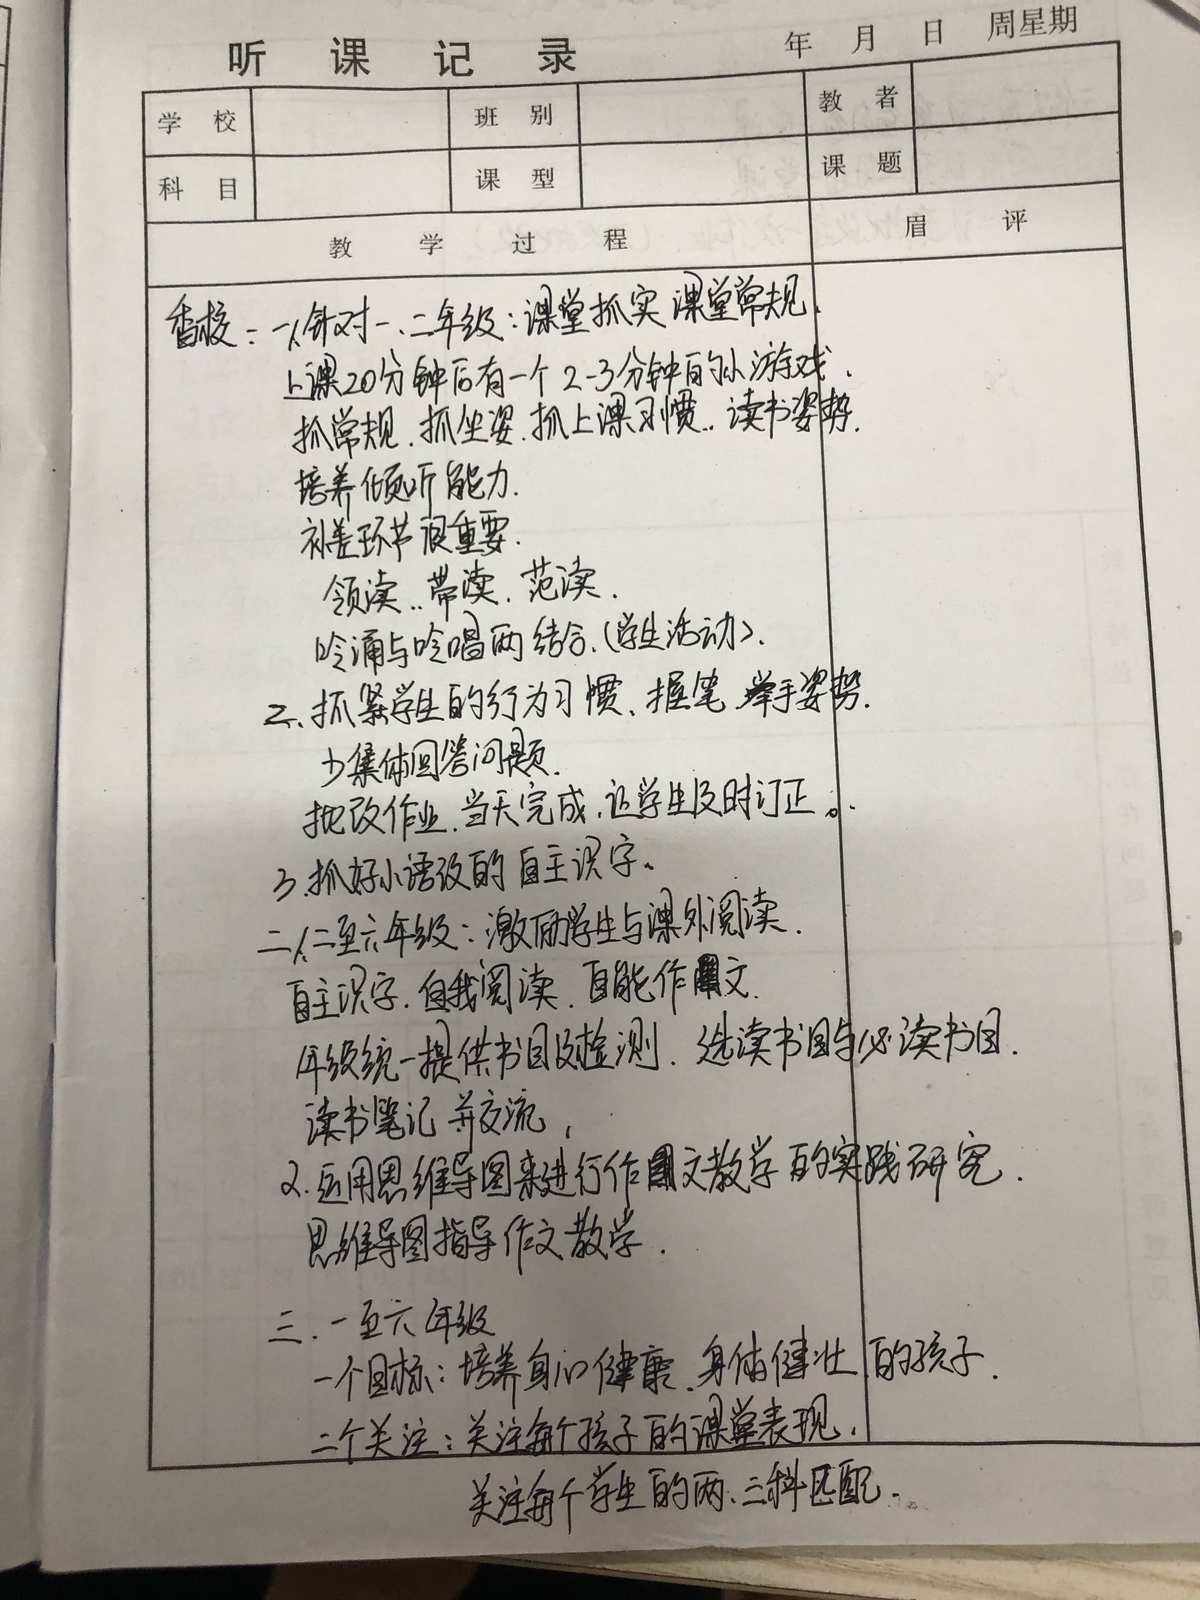 听课记录 年 月 日 周星期
学校 班别 教者
科目 课型 课题
教学过程 眉评
香校：一、1.针对一、二年级：课堂抓实课堂常规、
上课20分钟后有一个2-3分钟的小游戏、
抓常规、抓坐姿、抓上课习惯、读书姿势.
培养倾听能力.
补差环节很重要.
领读、带读、范读.
吟诵与吟唱两结合、(学生活动).
2、抓紧学生的行为习惯、握笔、举手姿势.
少集体回答问题.
批改作业、当天完成、让学生及时订正。
3、抓好小语段的自主识字。
二、1.二至六年级：激励学生与课外阅读.
自主识字、自我阅读、自能作文.
年级统一提供书目及检测、选读书目与必读书目.
读书笔记并交流,
2.运用思维导图来进行作文教学的实践研究.
思维导图指导作文教学.
三、一至六年级
一个目标：培养身心健康、身体健壮的孩子.
二个关注：关注每个孩子的课堂表现、
关注每个学生的两、三科匹配.